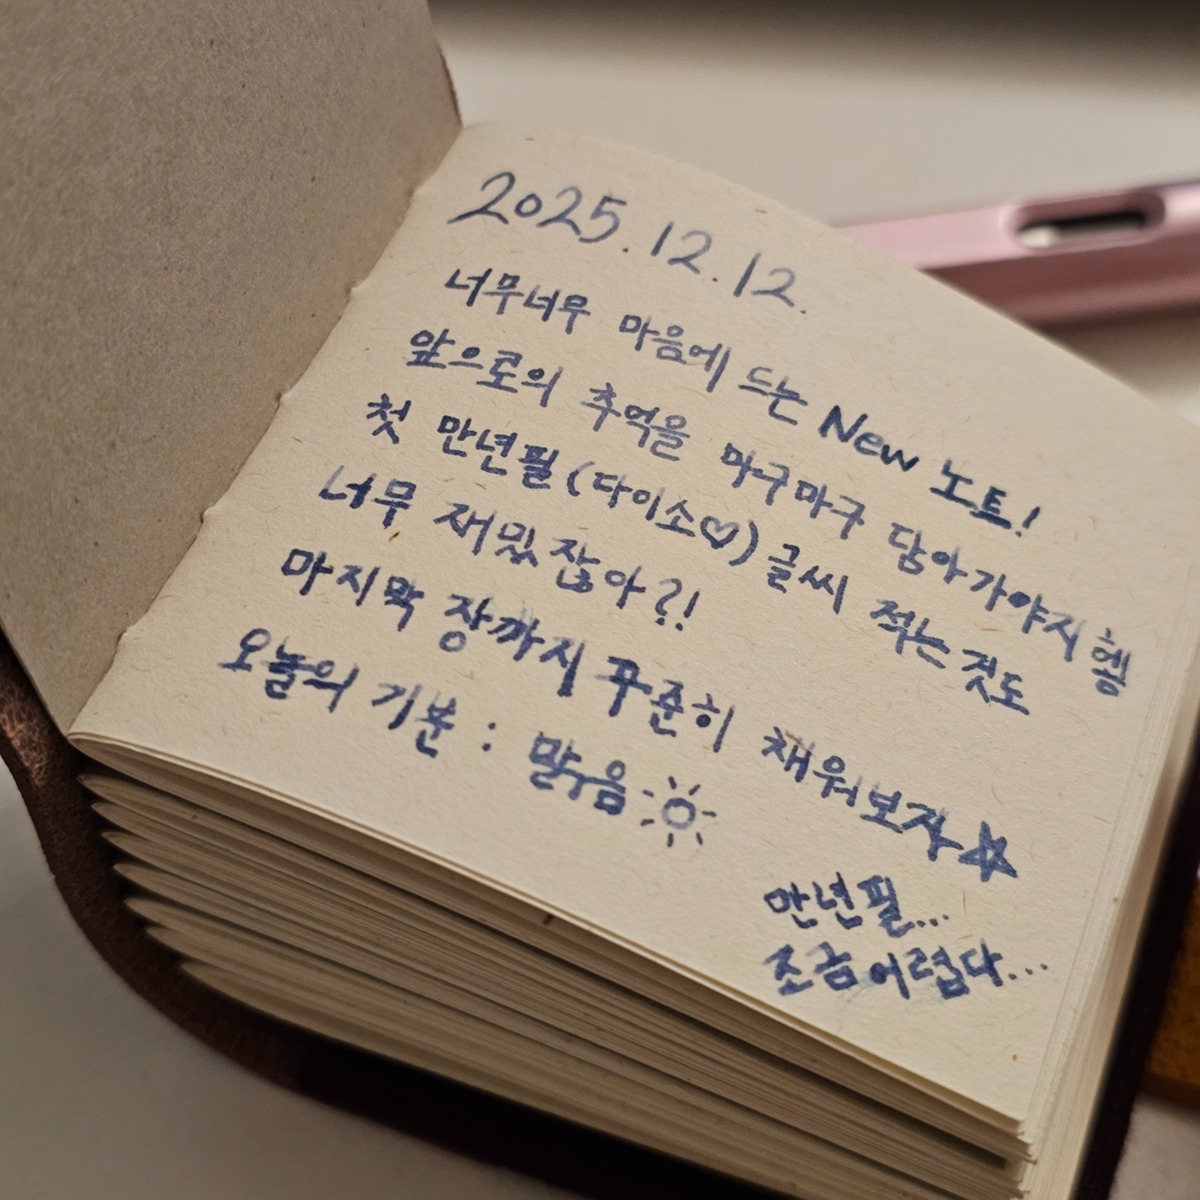 2025.12.12.
너무너무 마음에 드는 New 노트!
앞으로의 추억을 마구마구 담아가야지 헹
첫 만년필(다이소♡) 글씨 적는 것도
너무 재밌잖아?!
마지막 장까지 꾸준히 채워보자☆
오늘의 기분 : 맑음☀
만년필...
조금 어렵다...